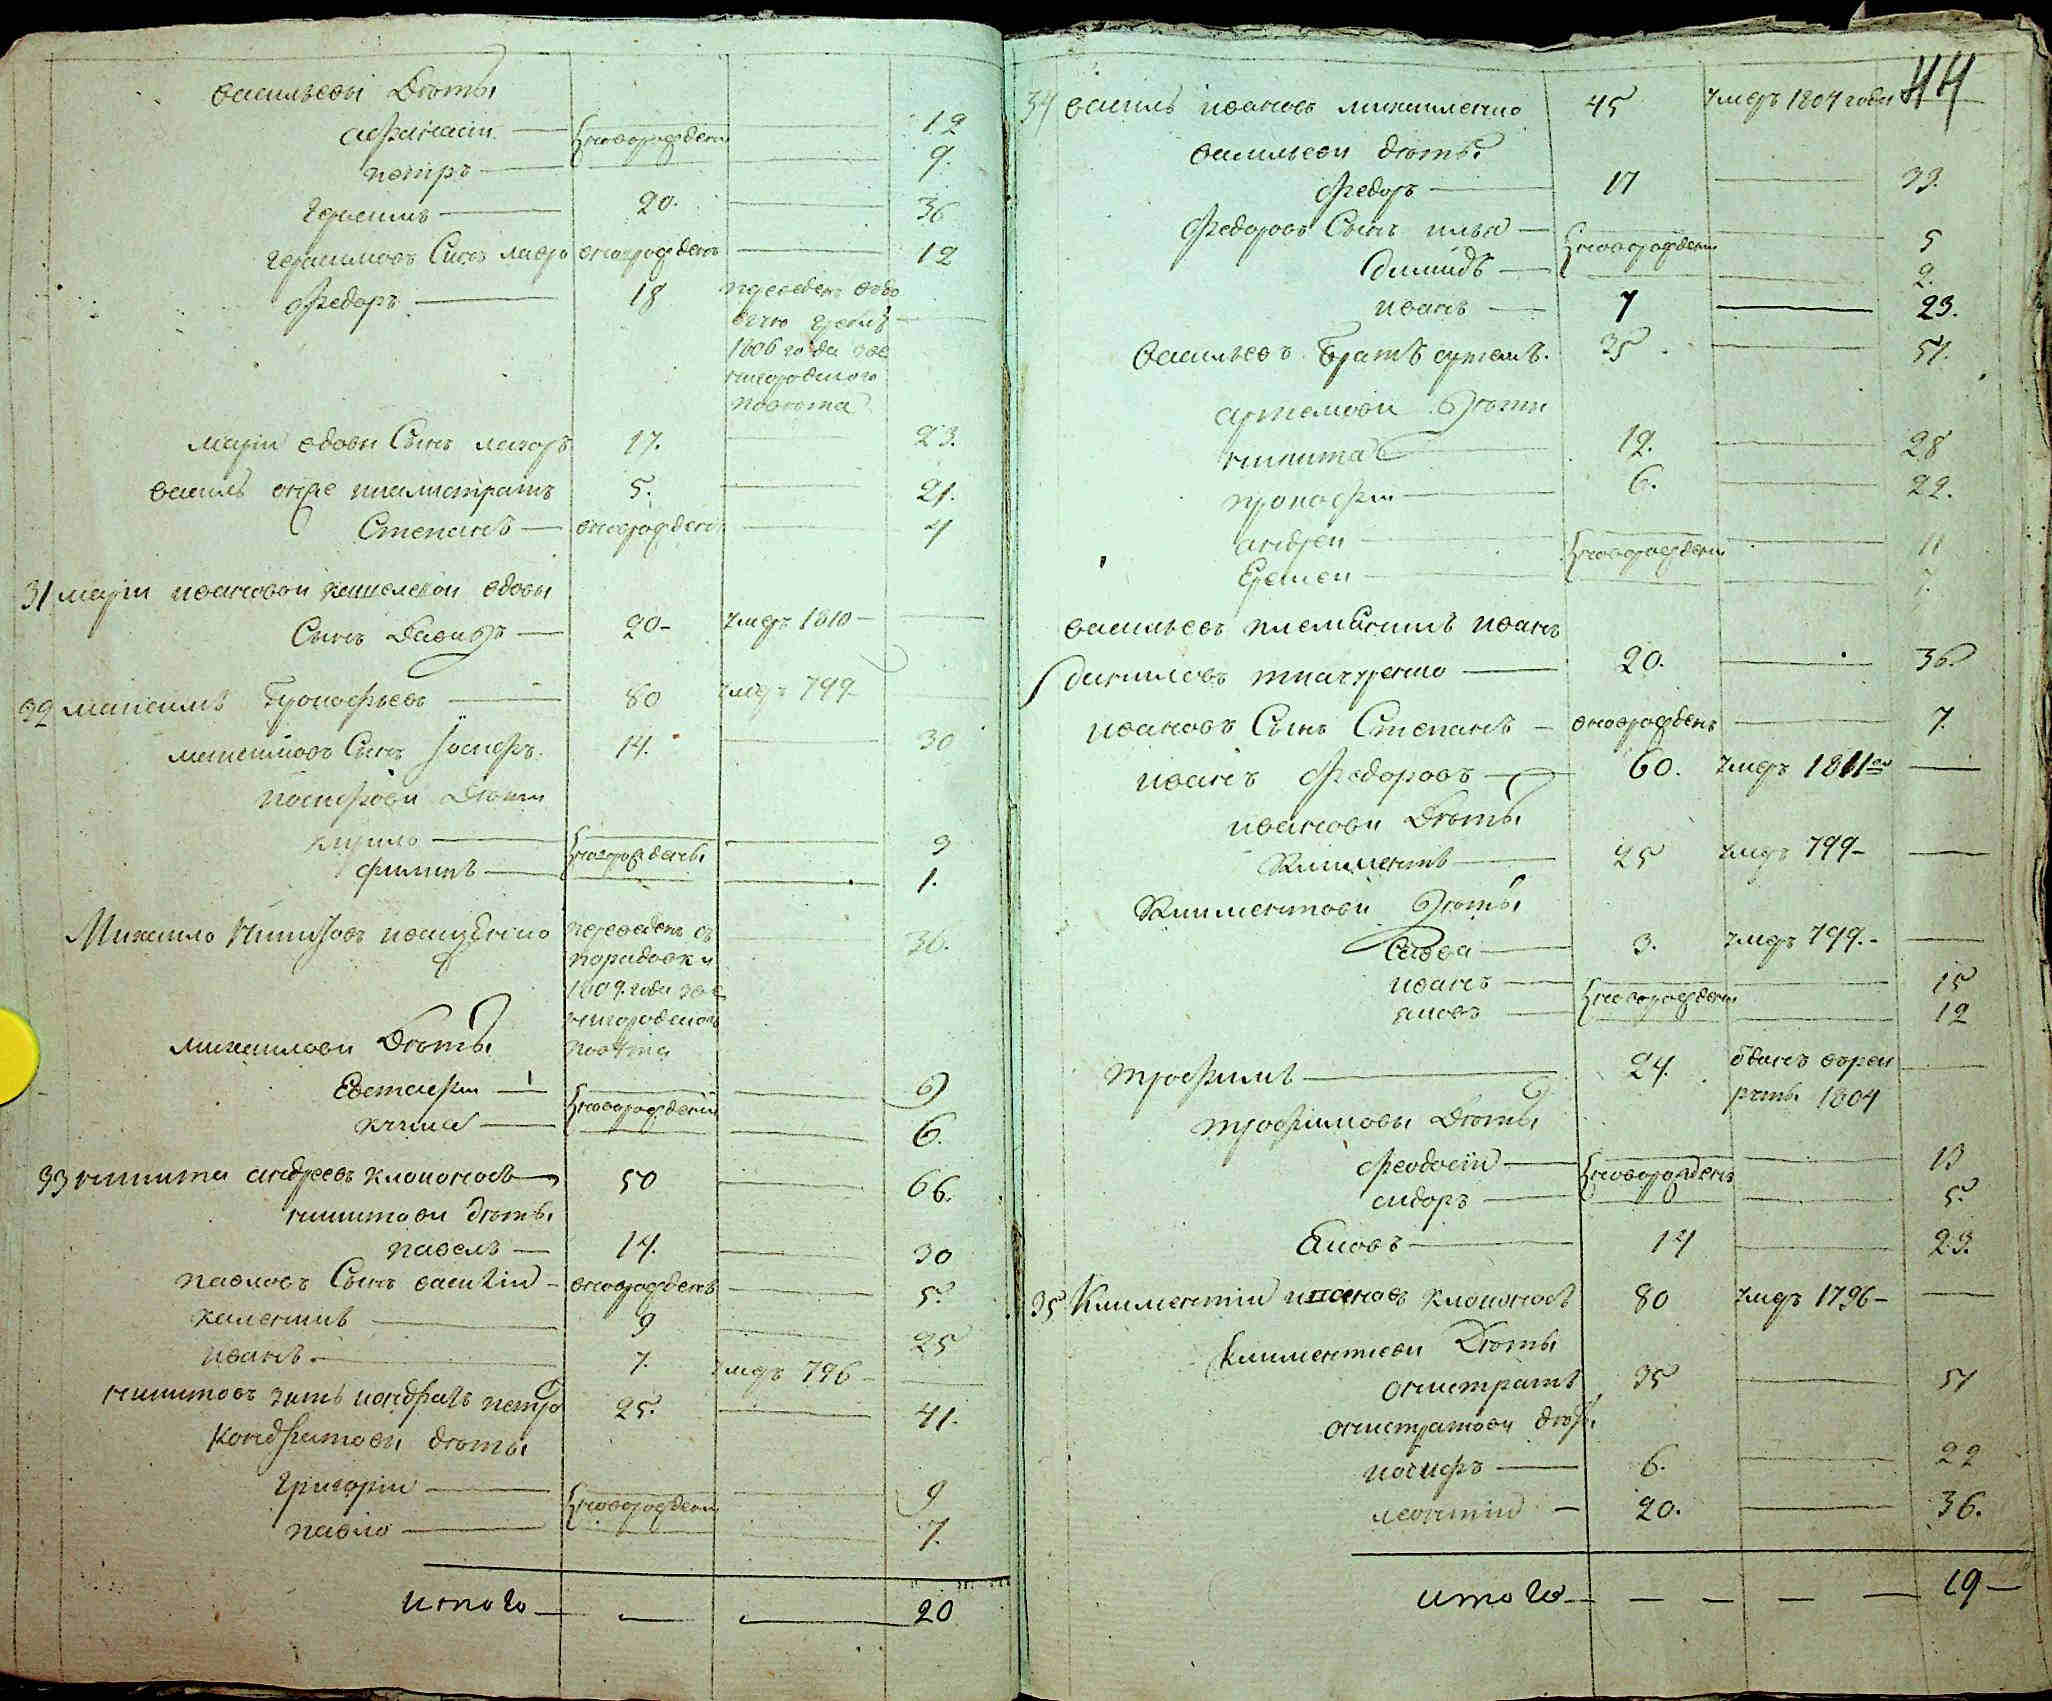 васильевы дѣти
афанасiи — вновь рожден — 12
петръ — 9.
герасимъ — 20. — 36
герасимовъ Сынъ лавръ вновь рожденъ — 12
Федоръ — 18 переведенъ
1806 года зве
нигородского
повѣта
марiи вдовы Сынъ лазоръ 17. — 23.
василь онже калистратъ 5. — 21.
Степанъ — вновь рожденъ — 4
31 марiи ивановои вдовы
Сынъ давидъ — 20 - умеръ 1810 —
32 максимъ Прокофьевъ — 80 умеръ 799 —
максимовъ Сынъ Iосифъ. 14. — 30
иосифови дѣти
кирило — вновь рождены — 3
филипъ — 1.
Михаило иващенко переведенъ съ — 36.
1809. года зве
нигородского
повѣта
михаилови дѣти
Евстафiи — вновь рождени — 9
кузма — 6.
33 никита андреевъ клоконосъ 50 — 66.
никитови дѣти
павелъ — 14. — 30
павловъ Сынъ василiи — вновь рожденъ — 5.
каленикъ — 9 — 25
иванъ. — 7. умеръ 796 —
никитовъ зять кондратъ петро 25. — 41.
Кондратови дѣти
григорiи — вновь рождени — 9
павло — 7.
итого — — — 20
44
34 василь ивановъ михаиленко 45 умеръ 1804 года
васильеви дѣти
Федоръ — 17 — 33.
Федоровъ Сынъ илья — вновь рождени — 5
демидъ — 2.
иванъ — 7 — 23.
васильевъ братъ артемъ. 35 — 51.
артемови дѣти
никита — 12. — 28
прокофiи — 6. — 22.
андреи — вновь рождени — 11
Еремеи — 7.
васильевъ племѣникъ иванъ
даниловъ ткаченко — 20. — 36.
ивановъ Сынъ Степанъ — вновь рожденъ — 7.
иванъ Федоровъ — 60. умеръ 1811го —
иванови дѣти
Климентъ — 25 умеръ 799 —
Климентови дѣти
Савва — 3. умеръ 799. —
иванъ — вновь рождени — 15
яковъ — 12
трофимъ — 24. отданъ врек
руты 1804
трофимовы дѣти
феодосiи — вновь рожденъ — 13
сидоръ — 5.
Яковъ — 14 — 23.
35 Климентiи ивановъ клоконосъ 80 умеръ 1796 —
Климентиеви дѣти
онистратъ 35 — 51
онистратови дѣти
иосифъ — 6. — 22
леонтiи — 20. — 36.
итого — — — — 19 —